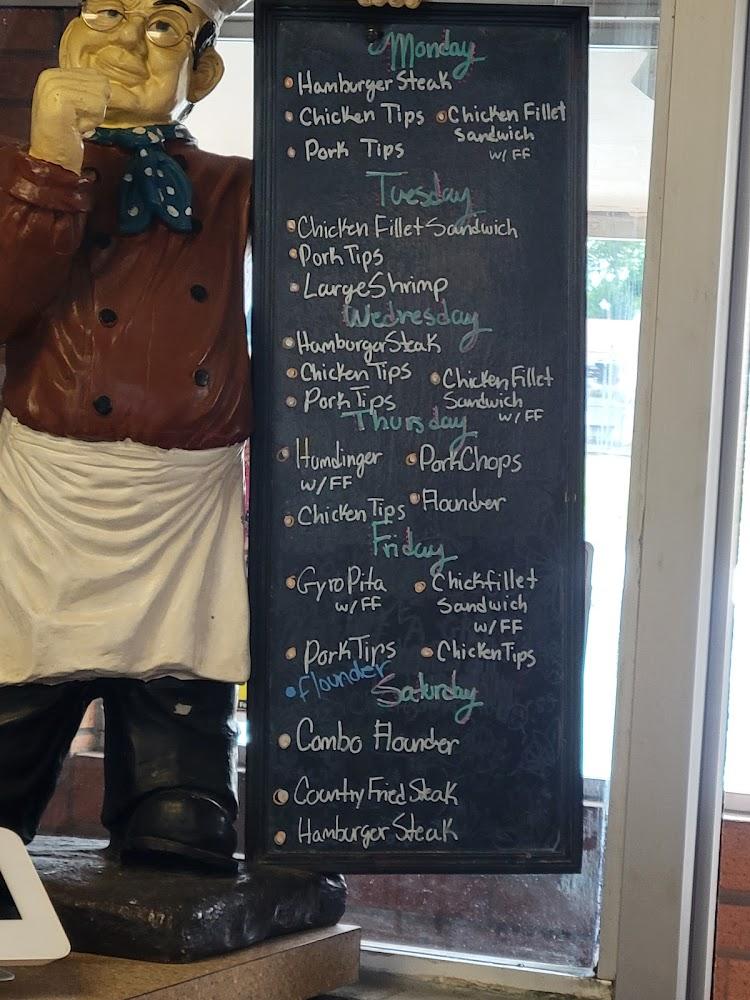 Monday
Hamburger Steak
Chicken Tips
Chicken Fillet
Sandwich
w/ FF
Pork Tips
Tuesday
Chicken Fillet Sandwich
Pork Tips
Large Shrimp
Wednesday
Hamburger Steak
Chicken Tips
Chicken Fillet
Sandwich
w/ FF
Pork Tips
Thursday
Humdinger
w/ FF
Pork Chops
Chicken Tips
Flounder
Friday
Gyro Pita
w/ FF
Chickfillet
Sandwich
w/ FF
Pork Tips
Chicken Tips
Flounder
Saturday
Combo Flounder
Country Fried Steak
Hamburger Steak